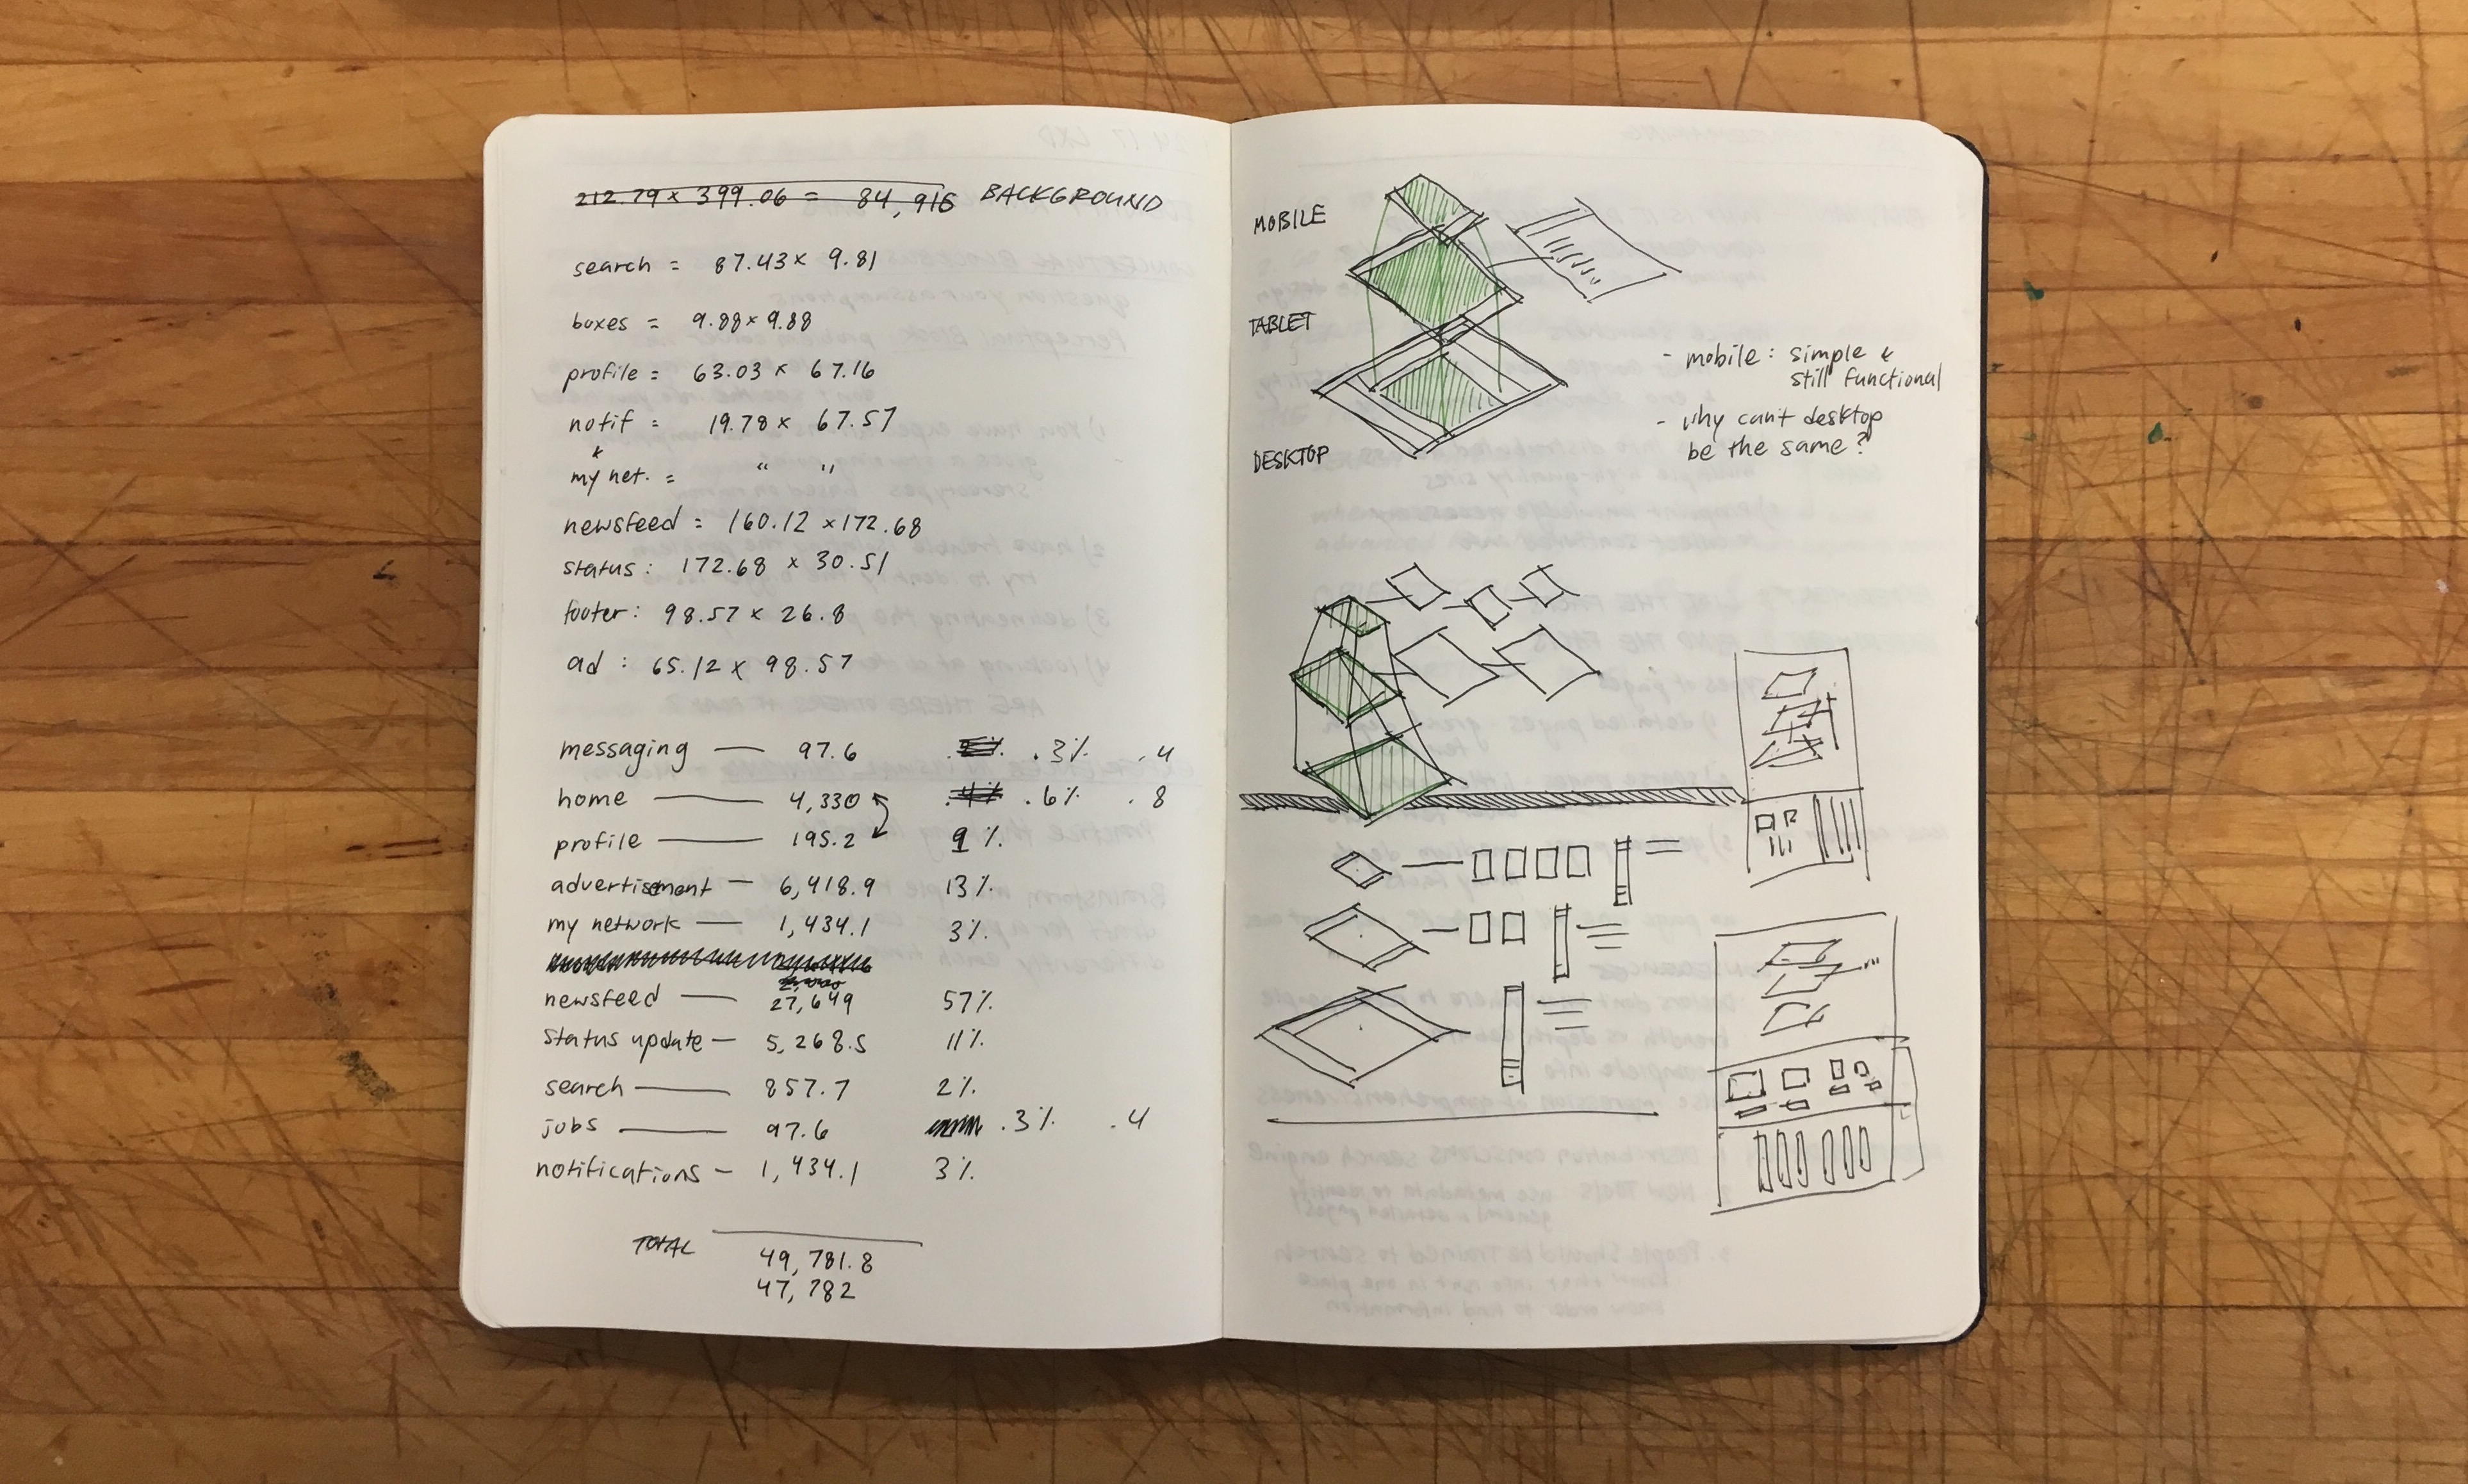 212.79 x 399.06 = 84,916 BACKGROUND
search = 87.43 x 9.81
boxes = 9.88 x 9.88
profile = 63.03 x 67.16
notif = 19.78 x 67.57
&
my net. = " "
newsfeed = 160.12 x 172.68
status: 172.68 x 30.51
footer: 98.57 x 26.8
ad : 65.12 x 98.57
messaging — 97.6 .3% .4
home — 4,330 .6% .8
profile — 195.2 9%
advertisement — 6,418.9 13%
my network — 1,434.1 3%
newsfeed — 27,649 57%
status update — 5,268.5 11%
search — 857.7 2%
jobs — 97.6 .3% .4
notifications — 1,434.1 3%
TOTAL
49,781.8
47,782
MOBILE
TABLET
DESKTOP
- mobile: simple &
still functional
- why can't desktop
be the same?